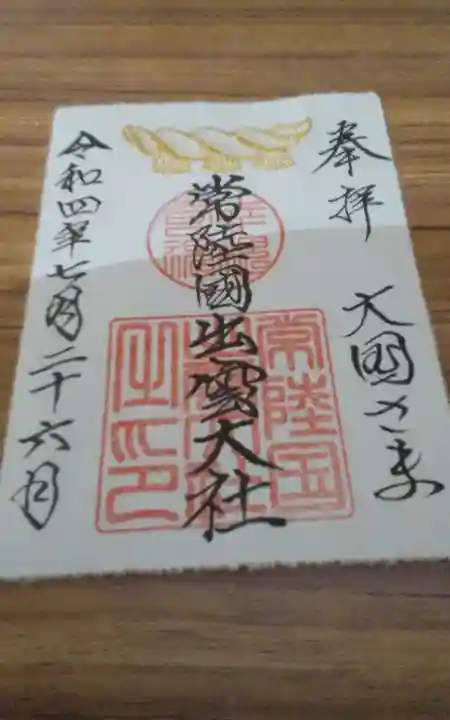 奉拝 大國さま
常陸國出雲大社
常陸国
之印
令和四年七月二十六日